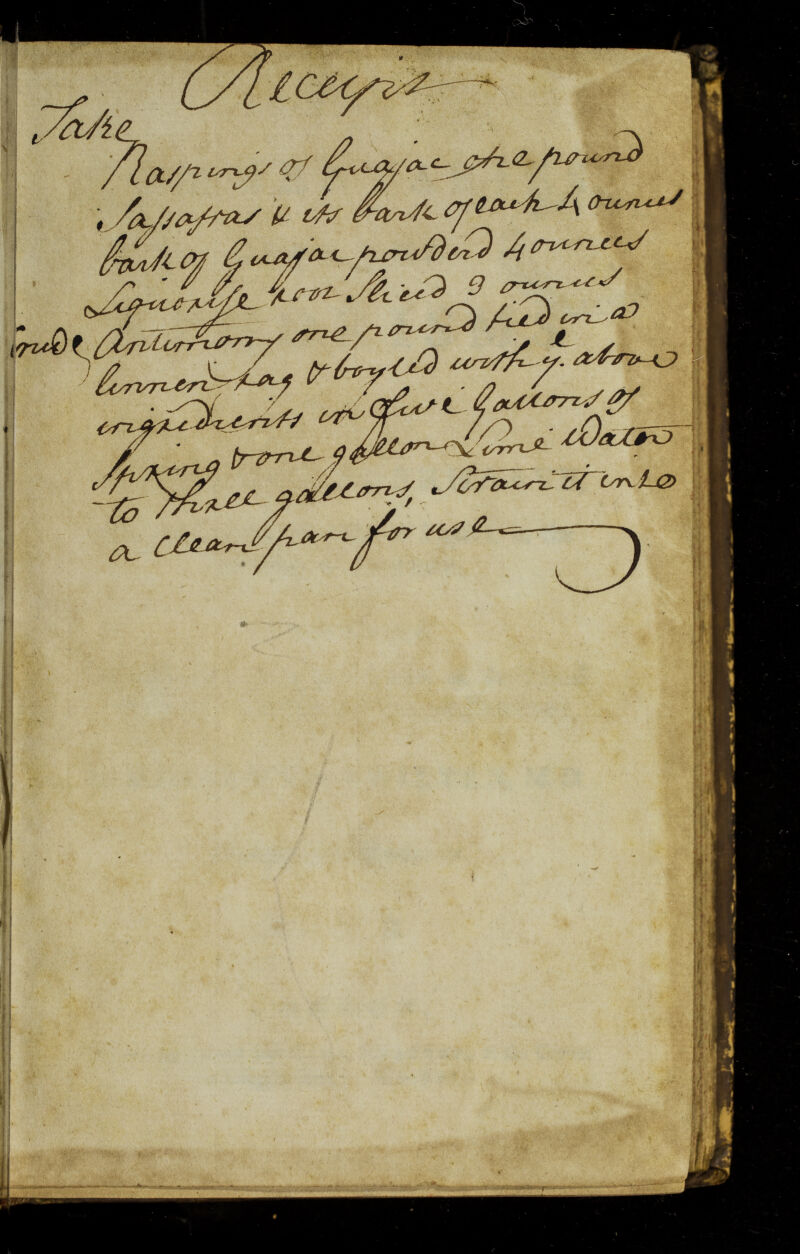 Receipt
Take
Raspings of Guajac one pound
Sassafras & its bark of each 4 ounces
bark of Guajac powderd 4 ounces
Liquorise root Sliced 3 ounces
Crude Antimony one pound tied in a
linnen rag & boyled with ye. above
ingredients in five Gallons of
Spring & one gallon Lime Water
to three gallons, Strain it into
a Clean pan for use